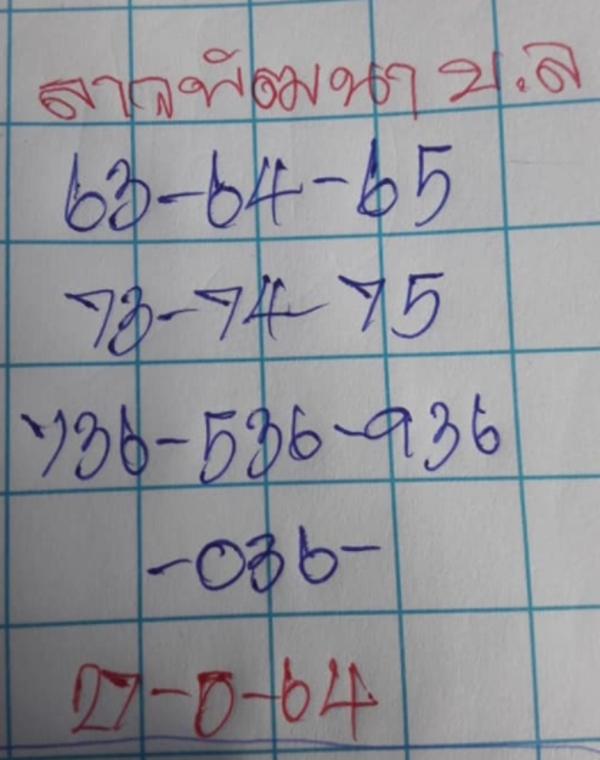 สาวพัฒนา บ.ล
63-64-65
73-74-75
736-536-936
-036-
27-8-64